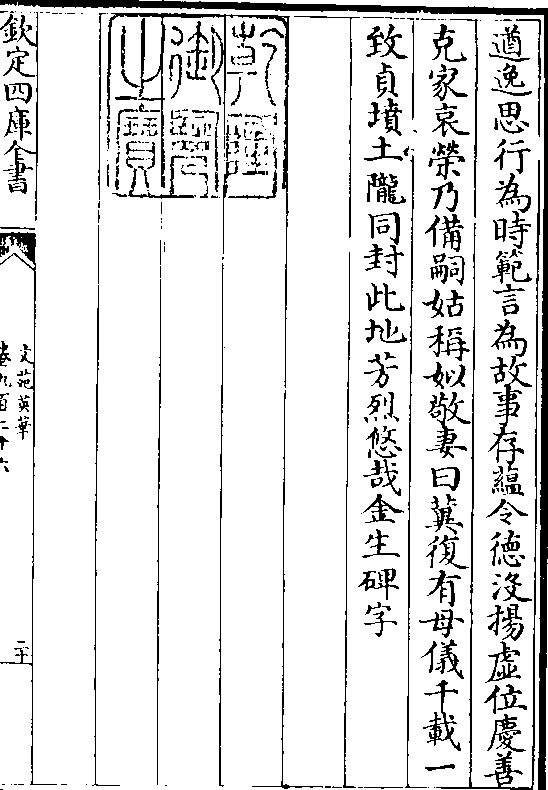 遒逸思行為時範言為故事存蘊令德沒揚虛位慶善
克家哀榮乃備嗣姑稱姒敬妻曰冀復有母儀千載一
致貞墳土隴同封此地芳烈悠哉金生碑字
乾隆御覽之寶
欽定四庫全書
文苑英華
卷九百二十六
二十